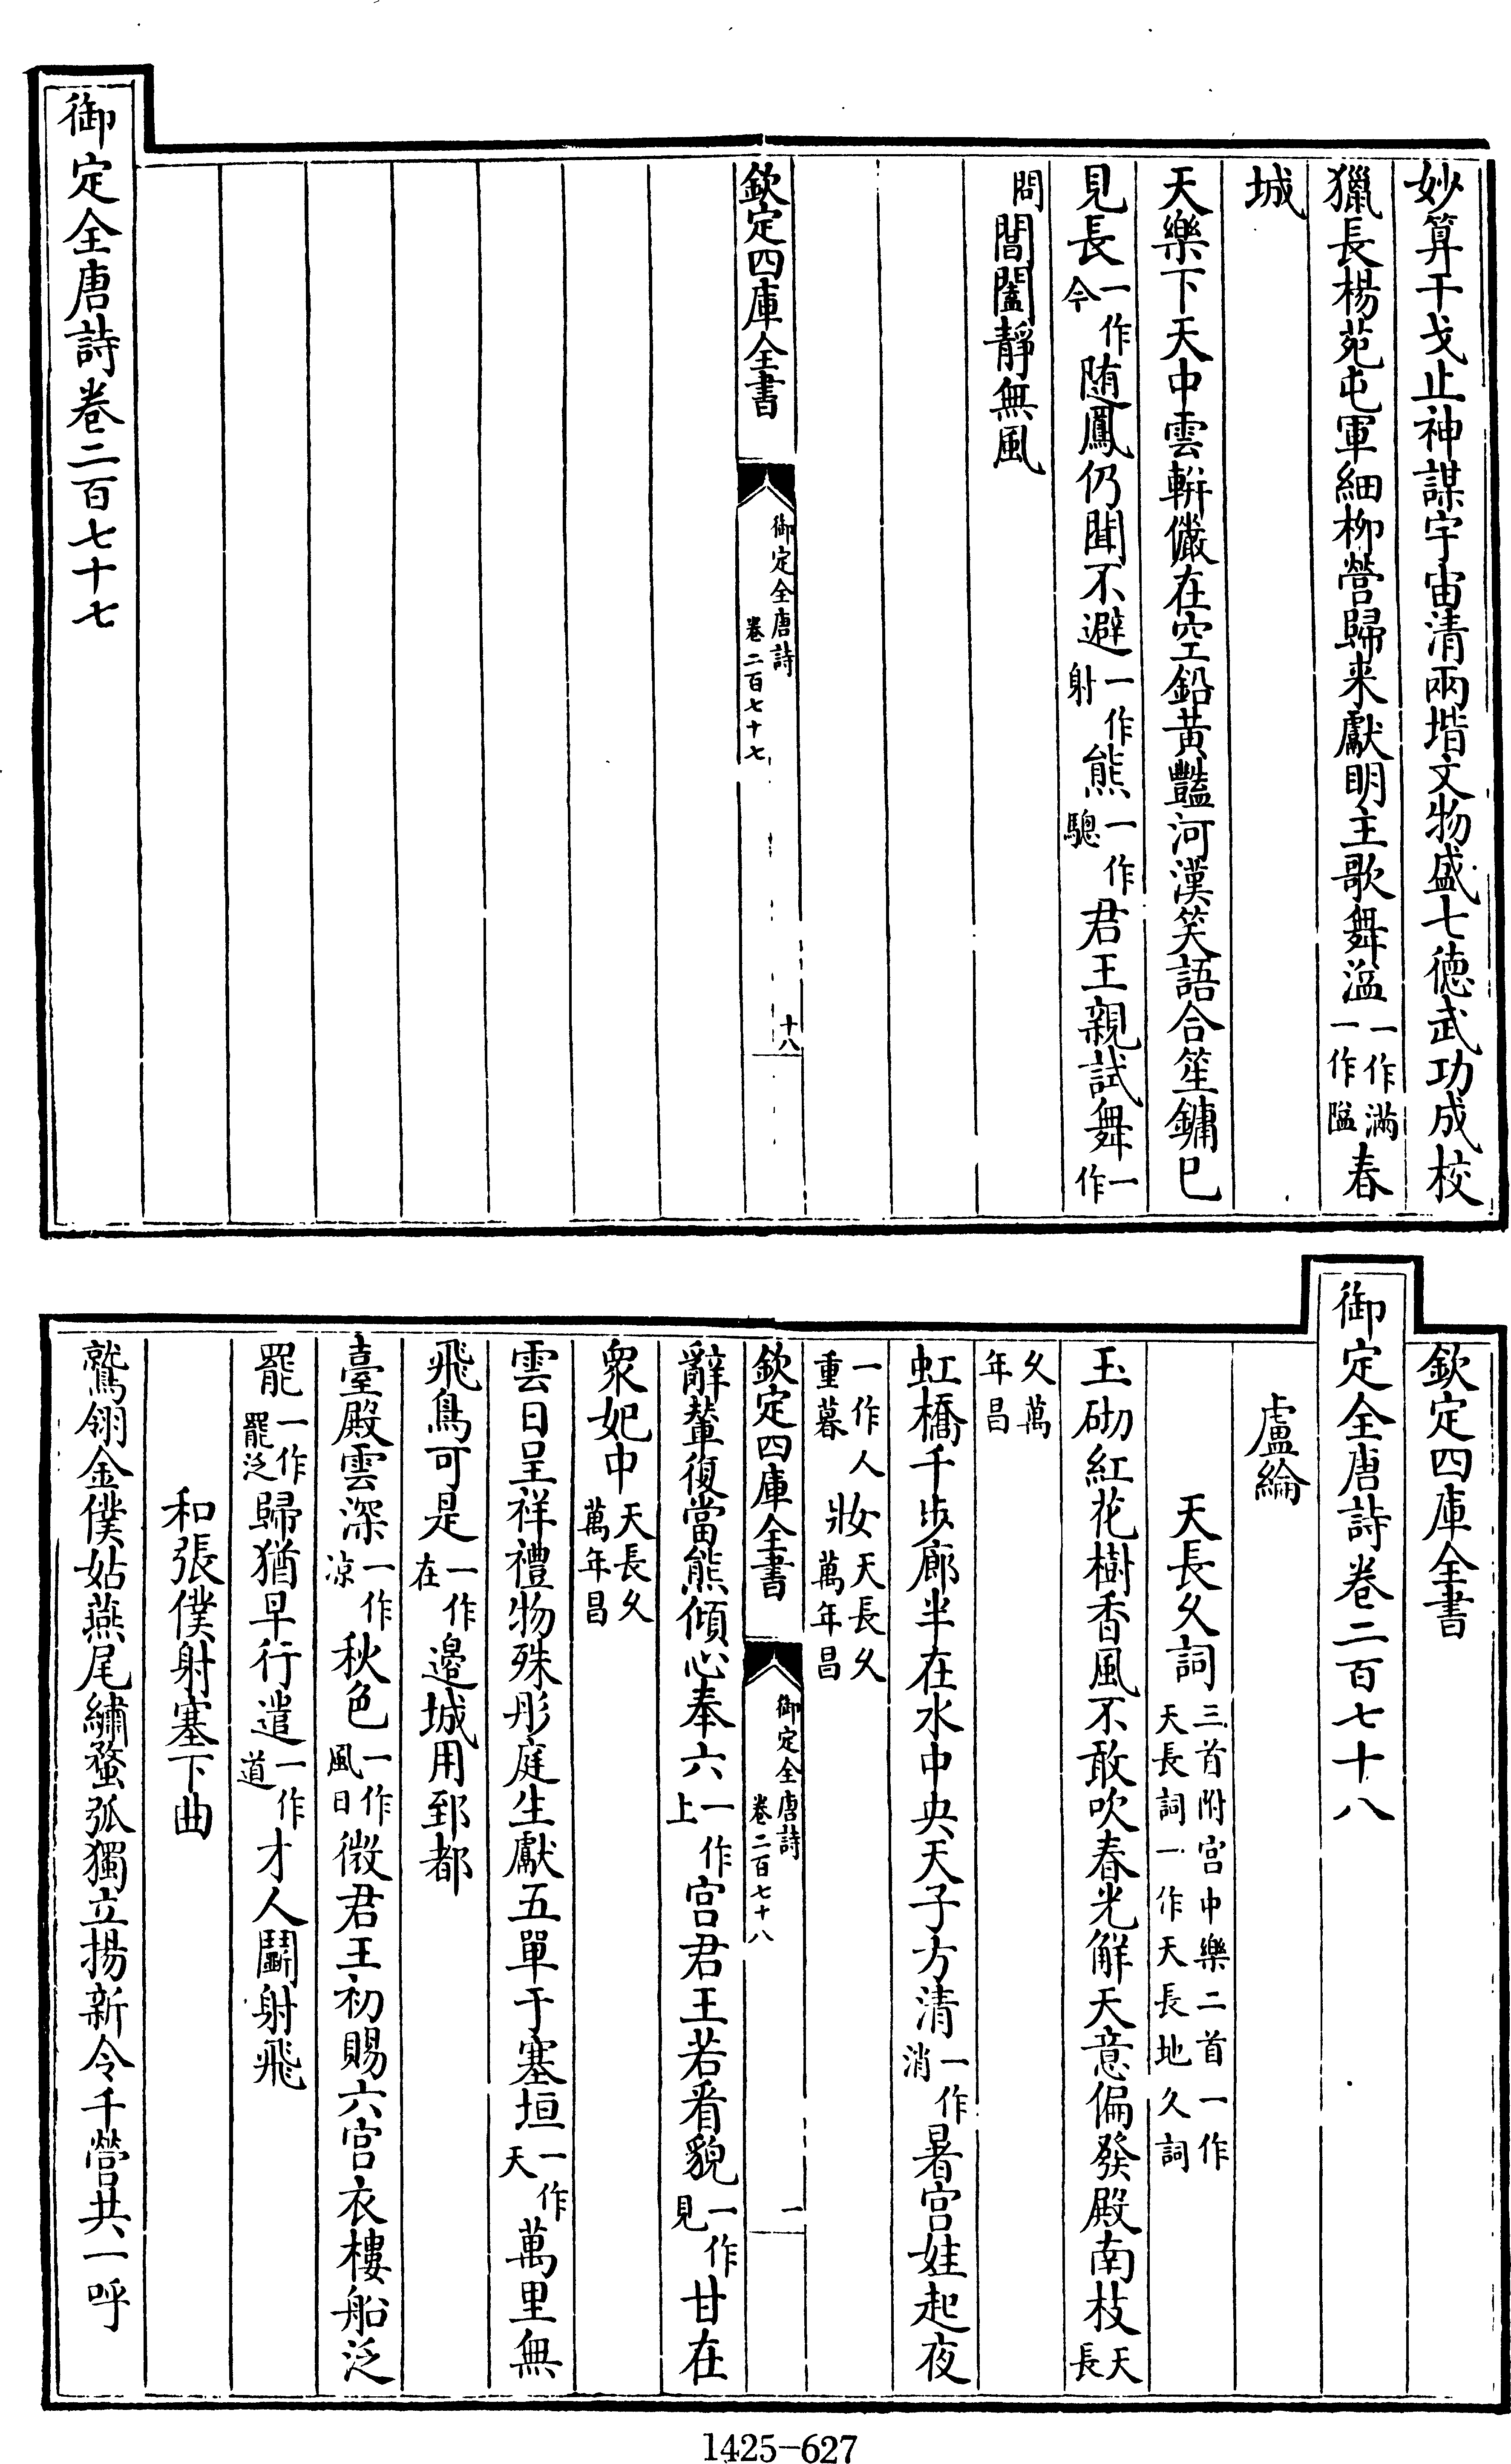 妙算干戈止神謀宇宙清兩堦文物盛七徳武功成校
獵長楊苑屯軍細柳營歸来獻明主歌舞溢一作滿一作臨春
城
天樂下天中雲輧儼在空鉛黄豔河漢笑語合笙鏞已
見長一作今随鳳仍聞不避一作射熊一作驄君王親試舞一作
問閶闔靜無風
欽定四庫全書
御定全唐詩
卷二百七十七
十八
御定全唐詩卷二百七十七
欽定四庫全書
御定全唐詩卷二百七十八
盧綸
天長久詞三首附宫中樂二首一作天長詞一作天長地久詞
玉砌紅花樹香風不敢吹春光解天意偏發殿南枝天長
久萬年昌
虹橋千步廊半在水中央天子方清一作消暑宫娃起夜
一作人重暮妝天長久萬年昌
欽定四庫全書
御定全唐詩
卷二百七十八
一
辭輦復當熊傾心奉六一作上宫君王若看貌一作見甘在
衆妃中天長久萬年昌
雲日呈祥禮物殊彤庭生獻五單于塞垣一作天萬里無
飛鳥可是一作在邉城用郅都
臺殿雲深一作凉秋色一作風日微君王初賜六宫衣樓船泛
罷一作罷泛歸猶早行遣一作道才人鬭射飛
和張僕射塞下曲
鷲翎金僕姑燕尾繡蝥弧獨立揚新令千營共一呼
1425-627